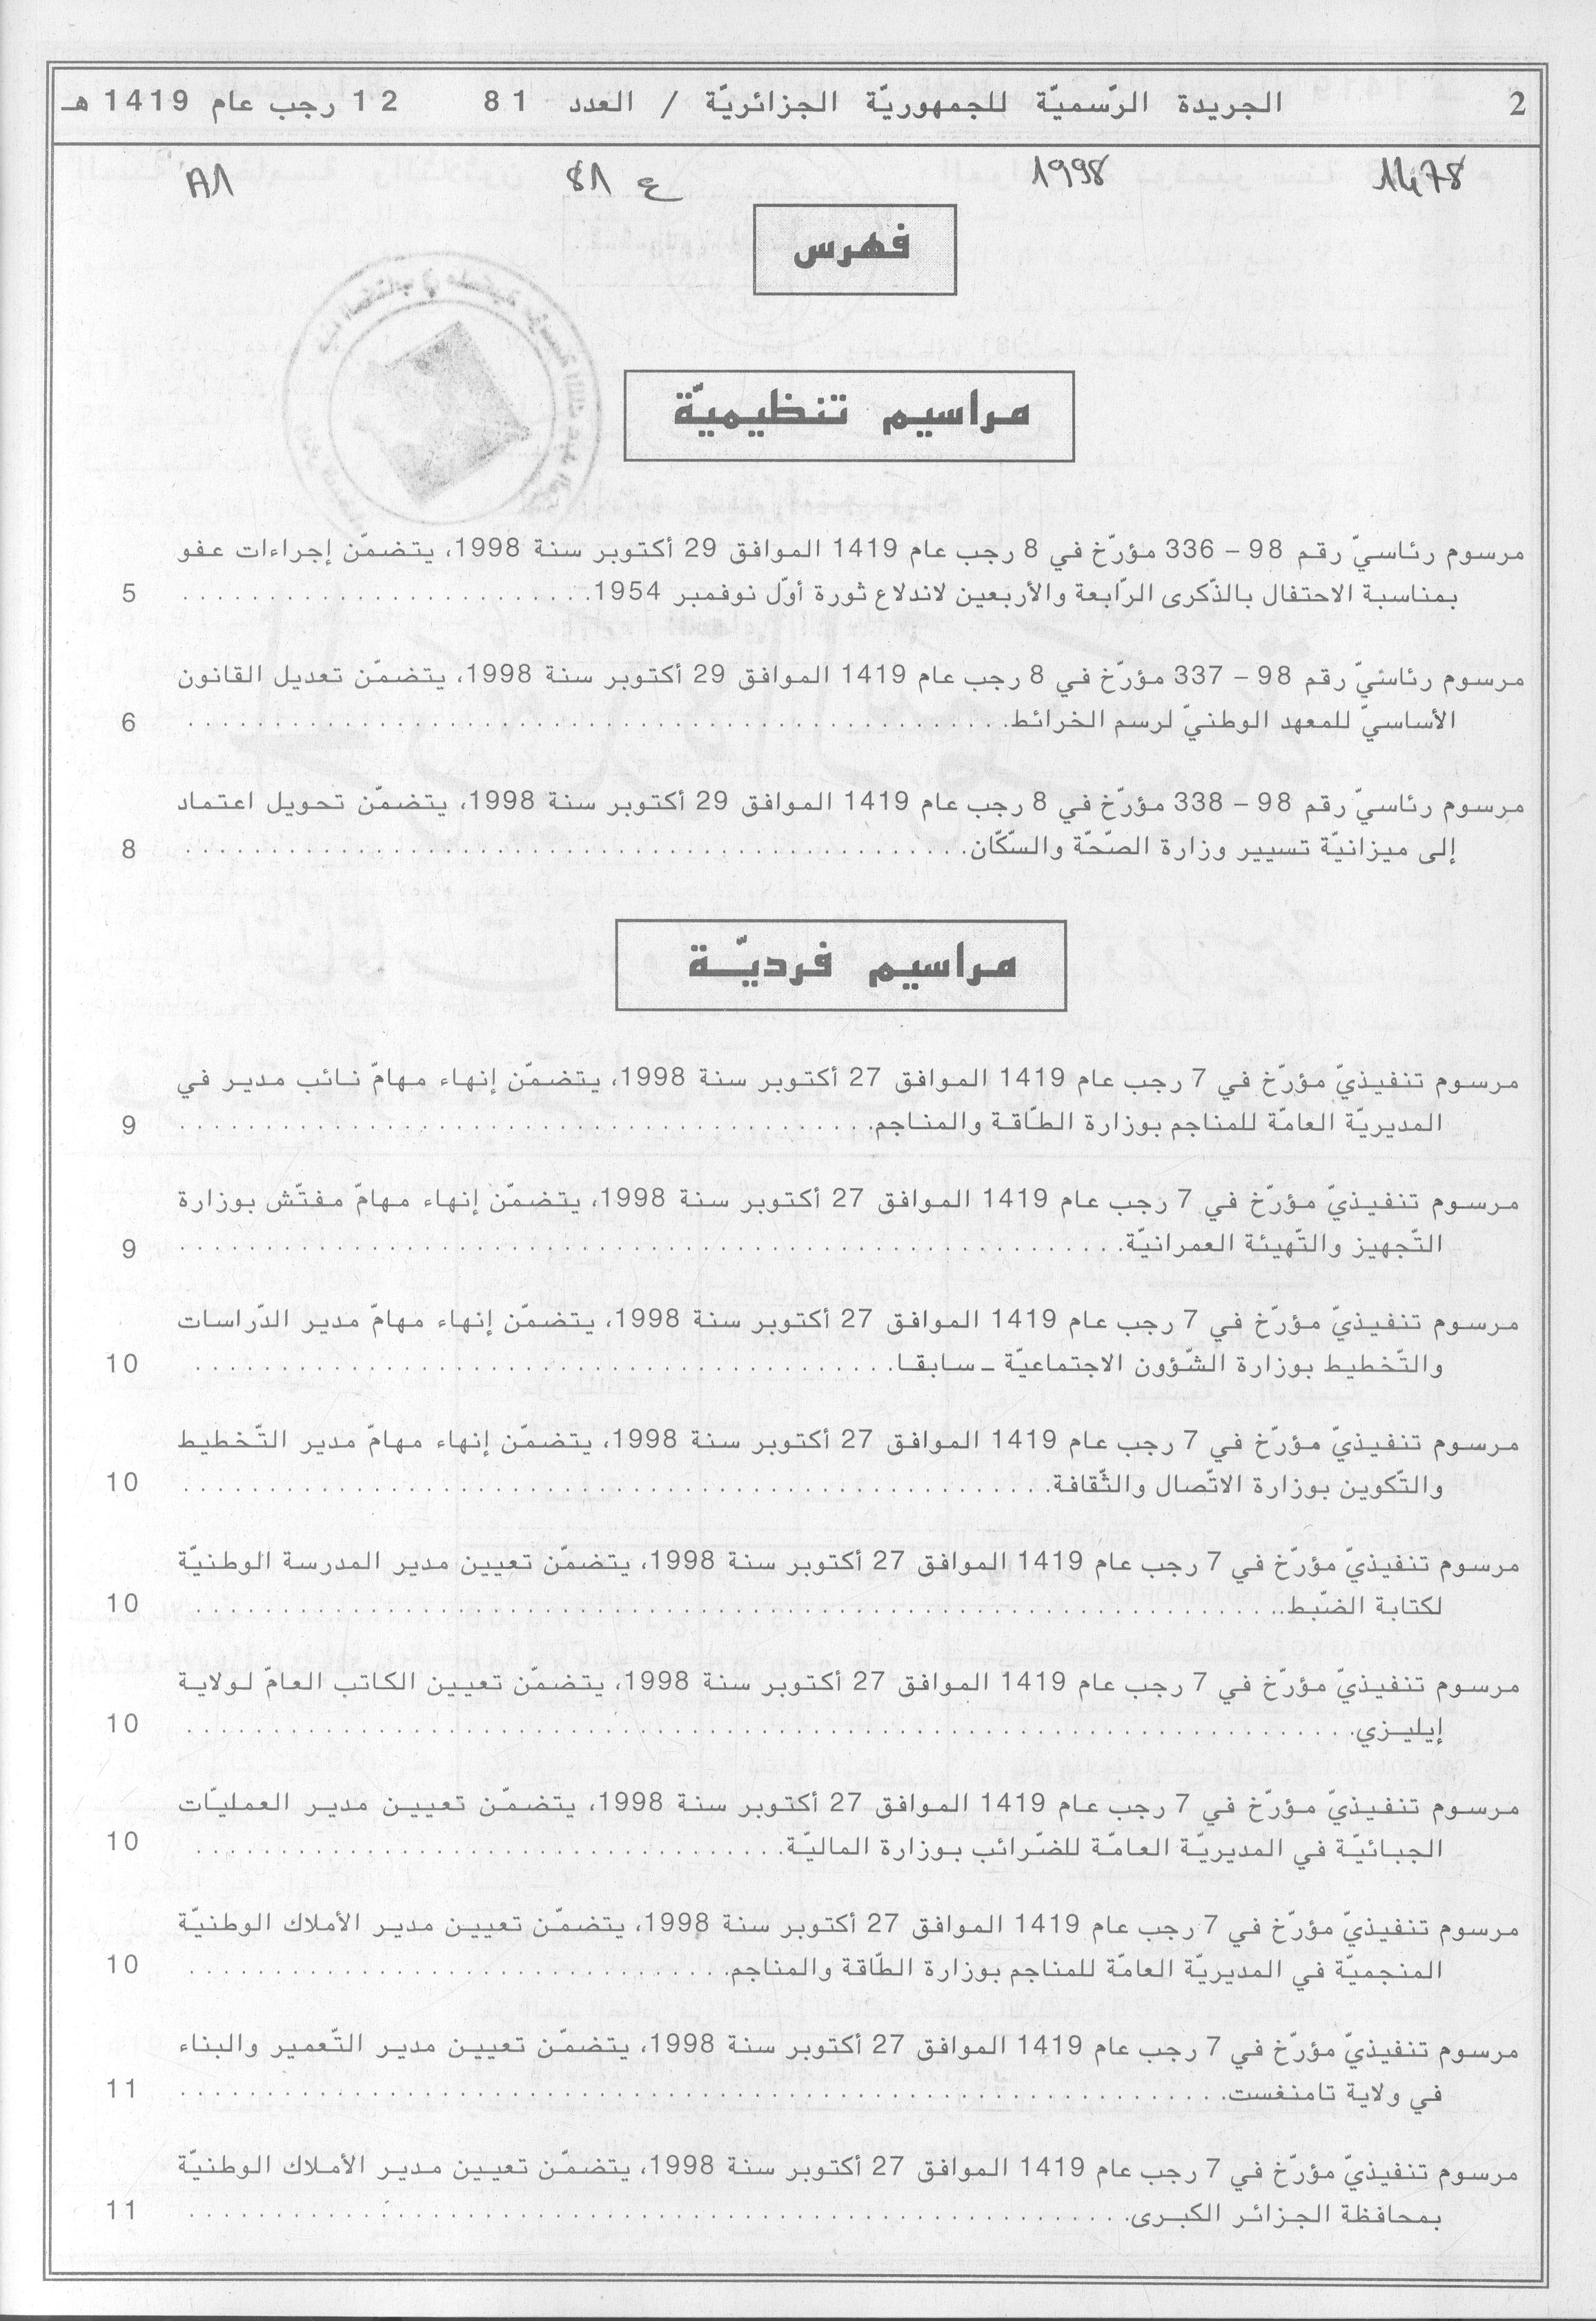 2 الجريدة الرّسميّة للجمهوريّة الجزائريّة / العدد 81 12 رجب عام 1419 هـ
1478 1998 ع 81 A1
فهرس
مراسيم تنظيميّة
مرسوم رئاسيّ رقم 98 – 336 مؤرّخ في 8 رجب عام 1419 الموافق 29 أكتوبر سنة 1998، يتضمّن إجراءات عفو
بمناسبة الاحتفال بالذّكرى الرّابعة والأربعين لاندلاع ثورة أوّل نوفمبر 1954. . . . . . . . . . . . . . . . . . . . . . . . 5
مرسوم رئاسيّ رقم 98 – 337 مؤرّخ في 8 رجب عام 1419 الموافق 29 أكتوبر سنة 1998، يتضمّن تعديل القانون
الأساسيّ للمعهد الوطنيّ لرسم الخرائط. . . . . . . . . . . . . . . . . . . . . . . . 6
مرسوم رئاسيّ رقم 98 – 338 مؤرّخ في 8 رجب عام 1419 الموافق 29 أكتوبر سنة 1998، يتضمّن تحويل اعتماد
إلى ميزانيّة تسيير وزارة الصّحّة والسّكّان. . . . . . . . . . . . . . . . . . . . . . . . 8
مراسيم فرديّــة
مرسوم تنفيذيّ مؤرّخ في 7 رجب عام 1419 الموافق 27 أكتوبر سنة 1998، يتضمّن إنهاء مهامّ نائب مدير في
المديريّة العامّة للمناجم بوزارة الطّاقة والمناجم. . . . . . . . . . . . . . . . . . . . . . . . 9
مرسوم تنفيذيّ مؤرّخ في 7 رجب عام 1419 الموافق 27 أكتوبر سنة 1998، يتضمّن إنهاء مهامّ مفتّش بوزارة
التّجهيز والتّهيئة العمرانيّة. . . . . . . . . . . . . . . . . . . . . . . . 9
مرسوم تنفيذيّ مؤرّخ في 7 رجب عام 1419 الموافق 27 أكتوبر سنة 1998، يتضمّن إنهاء مهامّ مدير الدّراسات
والتّخطيط بوزارة الشّؤون الاجتماعيّة ـ سابقـا. . . . . . . . . . . . . . . . . . . . . . . . 10
مرسوم تنفيذيّ مؤرّخ في 7 رجب عام 1419 الموافق 27 أكتوبر سنة 1998، يتضمّن إنهاء مهامّ مدير التّخطيط
والتّكوين بوزارة الاتّصال والثّقافة. . . . . . . . . . . . . . . . . . . . . . . . 10
مرسوم تنفيذيّ مؤرّخ في 7 رجب عام 1419 الموافق 27 أكتوبر سنة 1998، يتضمّن تعيين مدير المدرسة الوطنيّة
لكتابة الضّبط. . . . . . . . . . . . . . . . . . . . . . . . 10
مرسوم تنفيذيّ مؤرّخ في 7 رجب عام 1419 الموافق 27 أكتوبر سنة 1998، يتضمّن تعيين الكاتب العامّ لولاية
إيليـزي. . . . . . . . . . . . . . . . . . . . . . . . 10
مرسوم تنفيذيّ مؤرّخ في 7 رجب عام 1419 الموافق 27 أكتوبر سنة 1998، يتضمّن تعيين مدير العمليّات
الجبائيّة في المديريّة العامّة للضّرائب بوزارة الماليّة. . . . . . . . . . . . . . . . . . . . . . . . 10
مرسوم تنفيذيّ مؤرّخ في 7 رجب عام 1419 الموافق 27 أكتوبر سنة 1998، يتضمّن تعيين مدير الأملاك الوطنيّة
المنجميّة في المديريّة العامّة للمناجم بوزارة الطّاقة والمناجم. . . . . . . . . . . . . . . . . . . . . . . . 10
مرسوم تنفيذيّ مؤرّخ في 7 رجب عام 1419 الموافق 27 أكتوبر سنة 1998، يتضمّن تعيين مدير التّعمير والبناء
في ولاية تامنغست. . . . . . . . . . . . . . . . . . . . . . . . 11
مرسوم تنفيذيّ مؤرّخ في 7 رجب عام 1419 الموافق 27 أكتوبر سنة 1998، يتضمّن تعيين مدير الأملاك الوطنيّة
بمحافظة الجزائر الكبرى. . . . . . . . . . . . . . . . . . . . . . . . 11